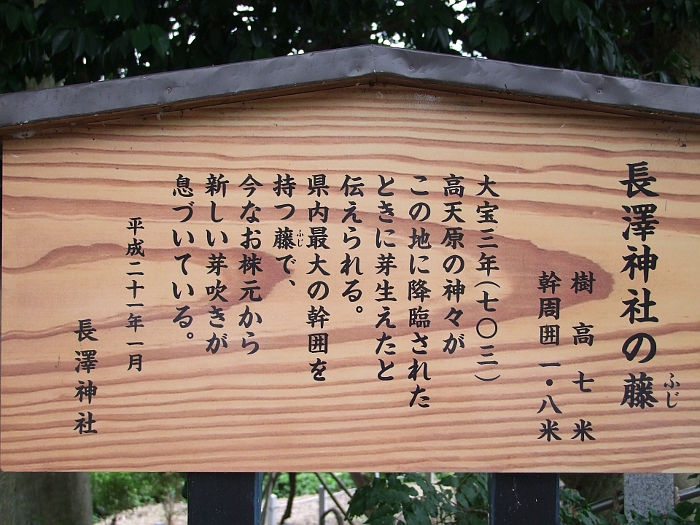 長澤神社の藤
ふじ
樹高七米
幹周囲一・八米
大宝三年(七〇三)
高天原の神々が
この地に降臨された
ときに芽生えたと
伝えられる。
県内最大の幹囲を
持つ藤で、
ふじ
今なお株元から
新しい芽吹きが
息づいている。
平成二十一年一月
長澤神社